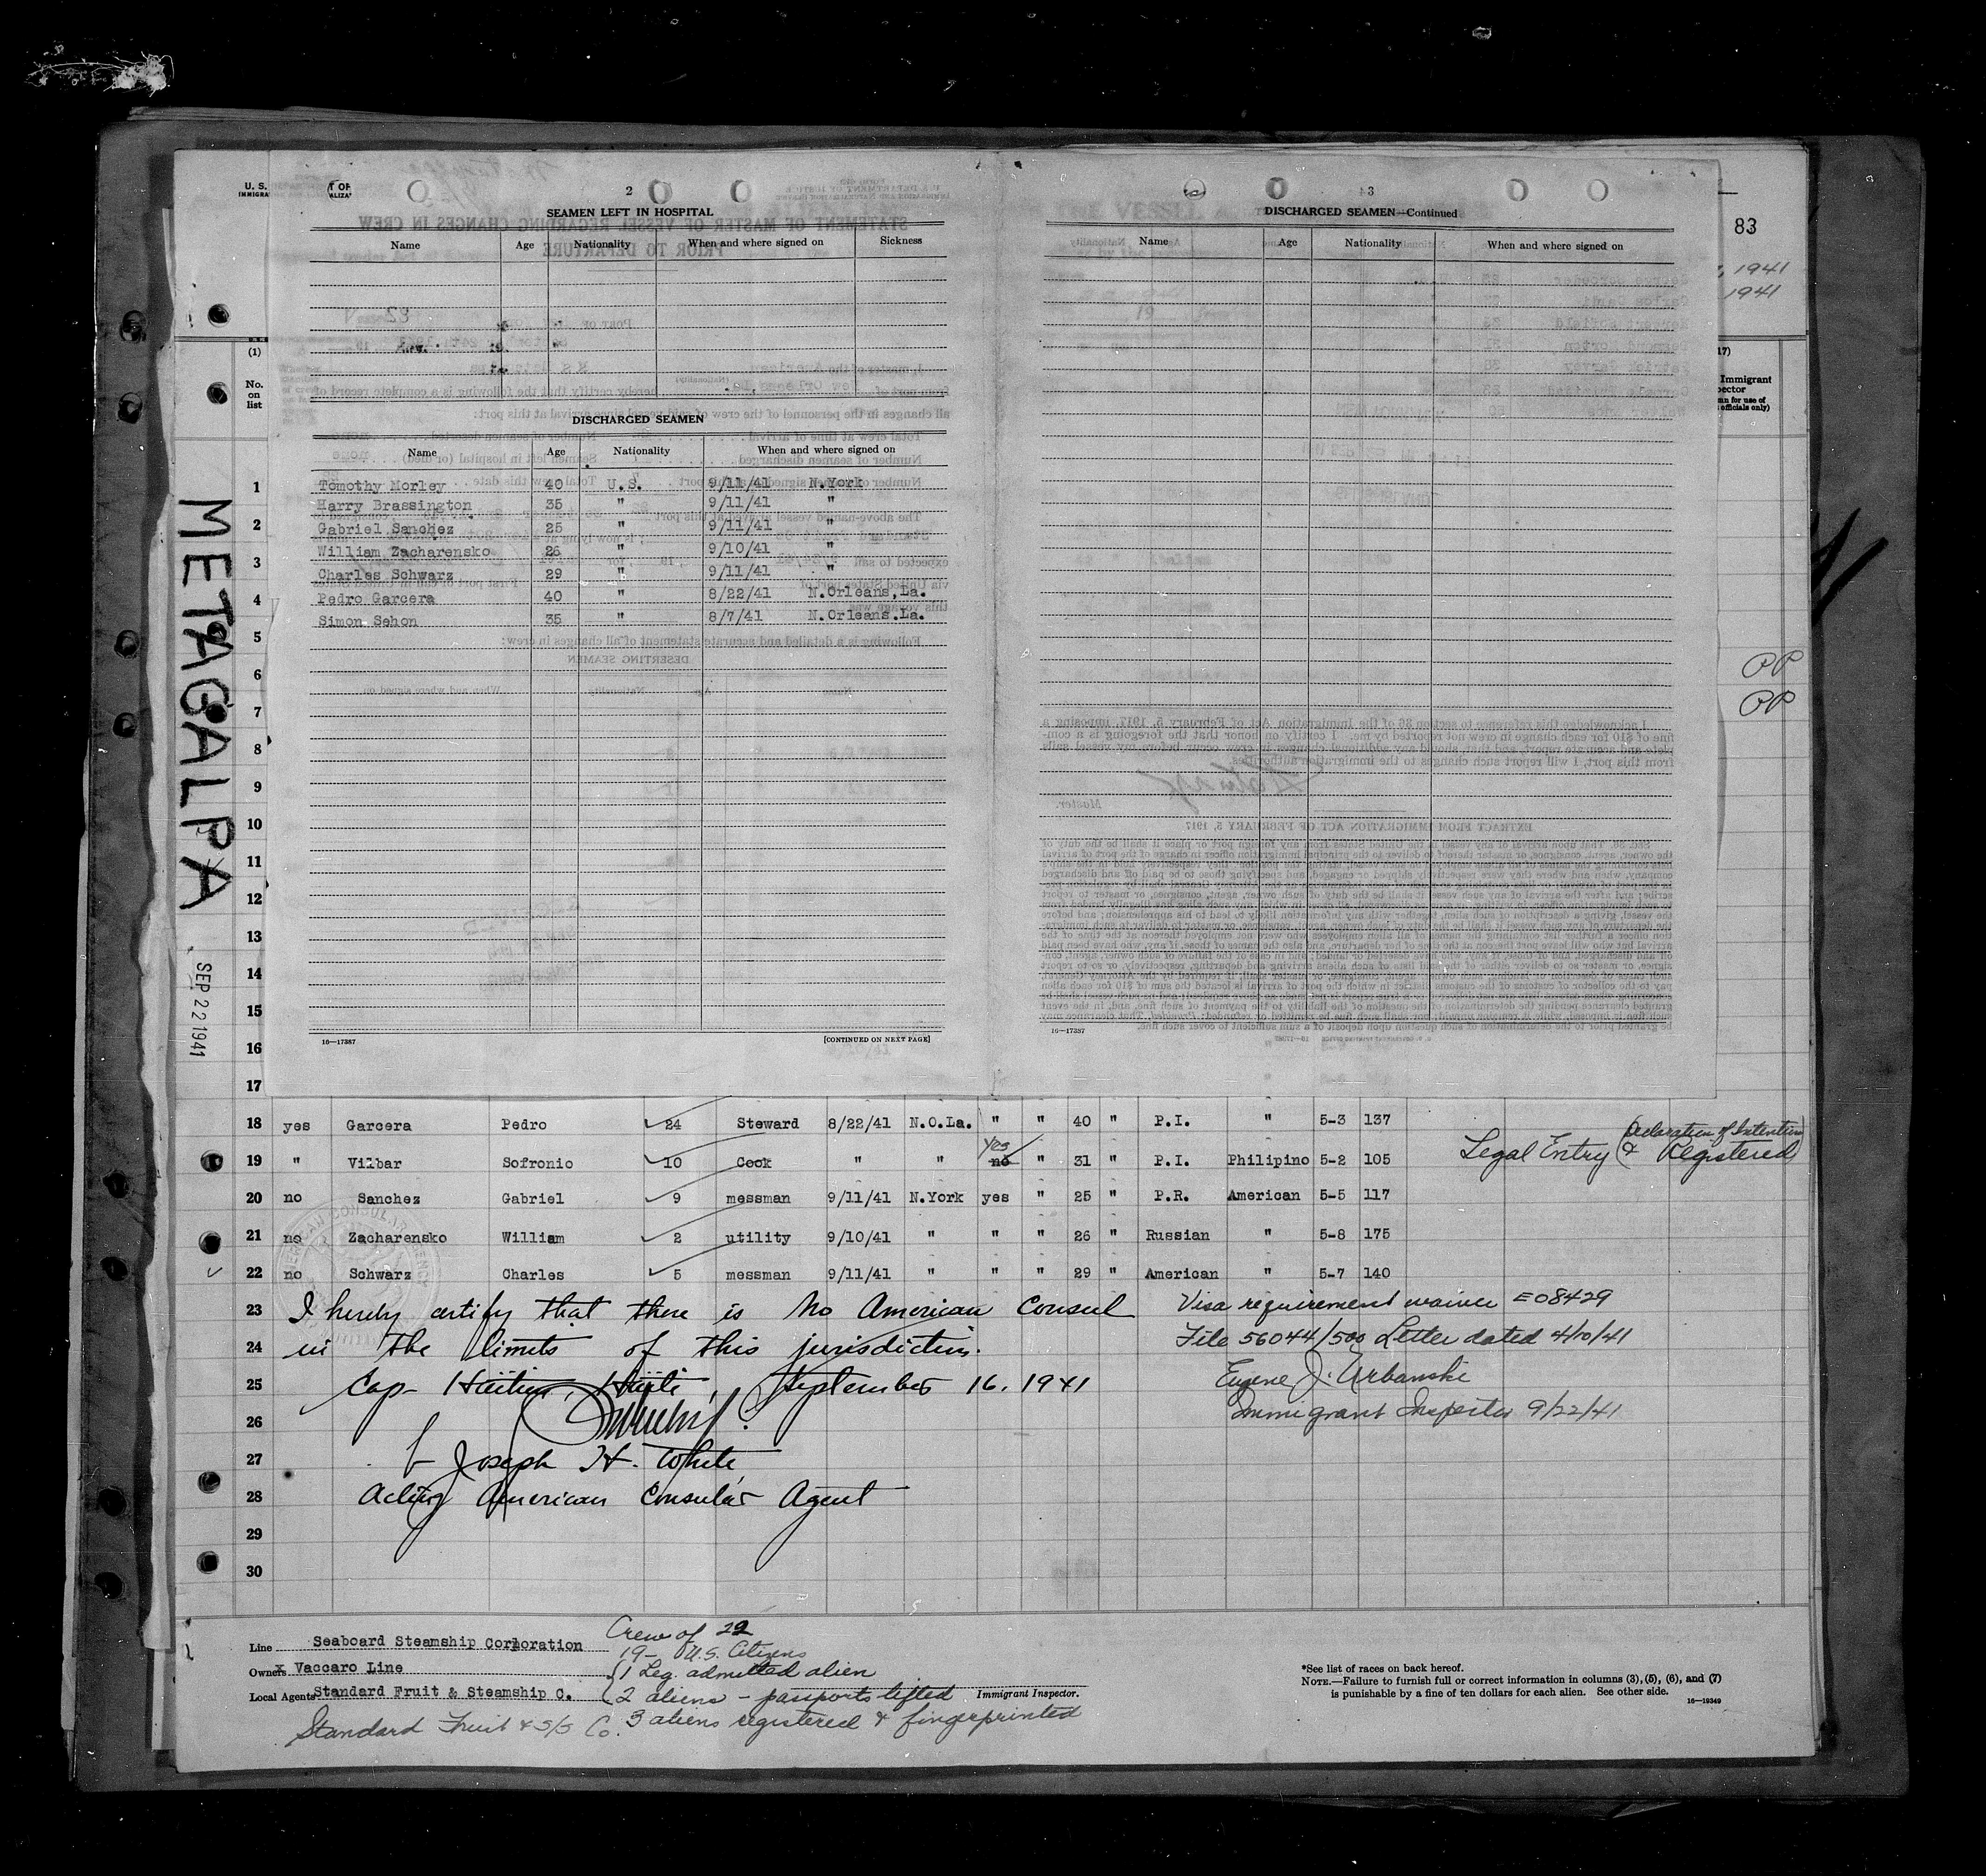 U. S.
IMMIGRA
T OF
ALIZA
2
SEAMEN LEFT IN HOSPITAL
Name Age Nationality When and where signed on Sickness
DISCHARGED SEAMEN
Name Age Nationality When and where signed on
Tomothy Morley 40 U.S. 9/11/41 N.York
Harry Brassington 35 " 9/11/41 "
Gabriel Sanchez 25 " 9/11/41 "
William Zacharensko 26 " 9/10/41 "
Charles Schwarz 29 " 9/11/41 "
Pedro Garcera 40 " 8/22/41 N.Orleans,La.
Simon Sehon 35 " 8/7/41 N.Orleans.La.
16—17387 [CONTINUED ON NEXT PAGE]
3
DISCHARGED SEAMEN—Continued
Name Age Nationality When and where signed on
16—17387
83
, 1941
1941
17)
Immigrant
pector
mn for use of
officials only)
PP
PP
METAGALPA
SEP 22 1941
(1)
No.
on
list
1
2
3
4
5
6
7
8
9
10
11
12
13
14
15
16
17
18 yes Garcera Pedro 24 Steward 8/22/41 N.O.La. " " 40 " P.I. " 5-3 137
19 " Vilbar Sofronio 10 Cook " " yes no " 31 " P.I. Philipino 5-2 105 Legal Entry (Declaration of Intention & Registered)
20 no Sanchez Gabriel 9 messman 9/11/41 N.York yes " 25 " P.R. American 5-5 117
21 no Zacharensko William 2 utility 9/10/41 " " " 26 " Russian " 5-8 175
22 no Schwarz Charles 5 messman 9/11/41 " " " 29 " American " 5-7 140
23 I hereby certify that there is no American Consul
24 in the limits of this jurisdiction.
25 Cap-Haitien, Haiti, September 16, 1941
26
27 Joseph H. White
28 Acting American Consular Agent
29
30
Visa requirement waiver E08429
File 56044/500 Letter dated 4/10/41
Eugene J. Urbanski
Immigrant Inspector 9/22/41
Line Seaboard Steamship Corporation
Owners Vaccaro Line
Local Agents Standard Fruit & Steamship C.
Standard Fruit & S/S Co.
Crew of 22
19- U.S. Citizens
1 Leg. admitted alien
2 aliens - passports lifted
3 aliens registered & fingerprinted
Immigrant Inspector.
*See list of races on back hereof.
NOTE.—Failure to furnish full or correct information in columns (3), (5), (6), and (7)
is punishable by a fine of ten dollars for each alien. See other side.
16—19349